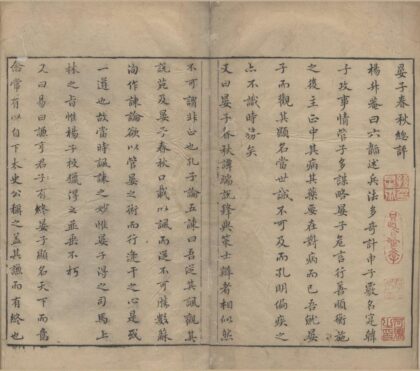 晏子春秋總評
楊升菴曰六韜述兵法多奇計申子覈名寔韓
子攻事情管子多謀略晏子危言行善順衡施
之後主正中其病其藥晏在對病而已吾觀晏
子而觀其顯名當世誠不可及而孔明偏疾之
亦不識時務矣
又曰晏子春秋譚端說鋒與策士辯者相似然
不可謂非正也孔子論五諫曰吾從其諷觀其
說苑及晏子春秋口載以諷而從不可勝數蘇
洵作諫論欲以管晏之術而行逢干之心是或
一道也故當時諷諫之妙惟晏子得之司馬上
林之旨惟楊子校獵得之並垂不朽
又曰易曰謙亨君子有終晏子顯名天下而意
念常有以自下太史公稱之蓋其謙而有終也